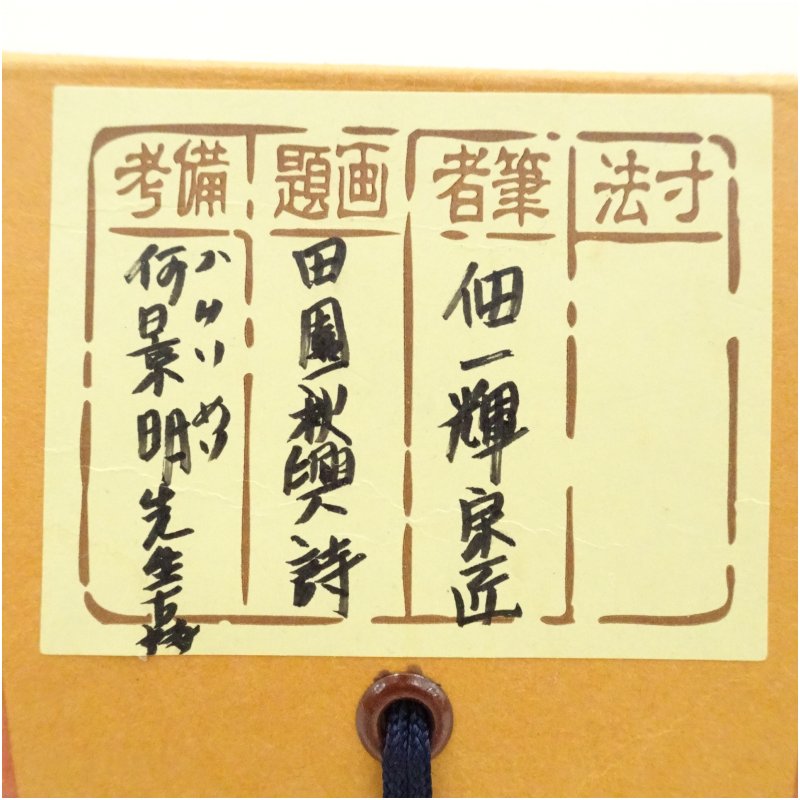 寸法
筆者
佃一輝宗匠
画題
田園秋興詩
備考
かけいめい
何景明先生